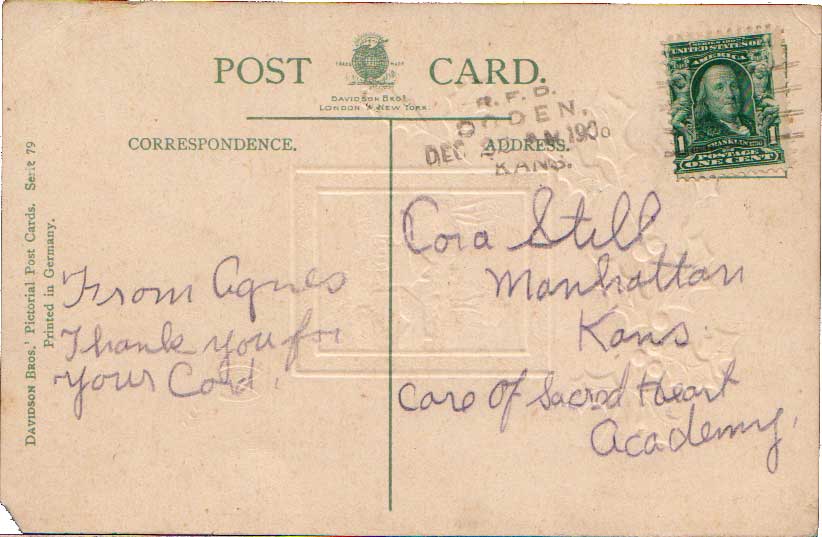 POST CARD.
TRADE MARK
DAVIDSON BROS.
LONDON & NEW YORK.
CORRESPONDENCE.
ADDRESS.
R.F.D.
OGDEN,
DEC AM 190
KANS.
SERIES 1902
UNITED STATES OF
AMERICA
1 FRANKLIN 1
POSTAGE
ONE CENT
DAVIDSON BROS.' Pictorial Post Cards. Serie 79
Printed in Germany.
From Agnes
Thank you for
your Cold.
Cora Still
Manhattan
Kans.
Care Of Sacred Heart
Academy,